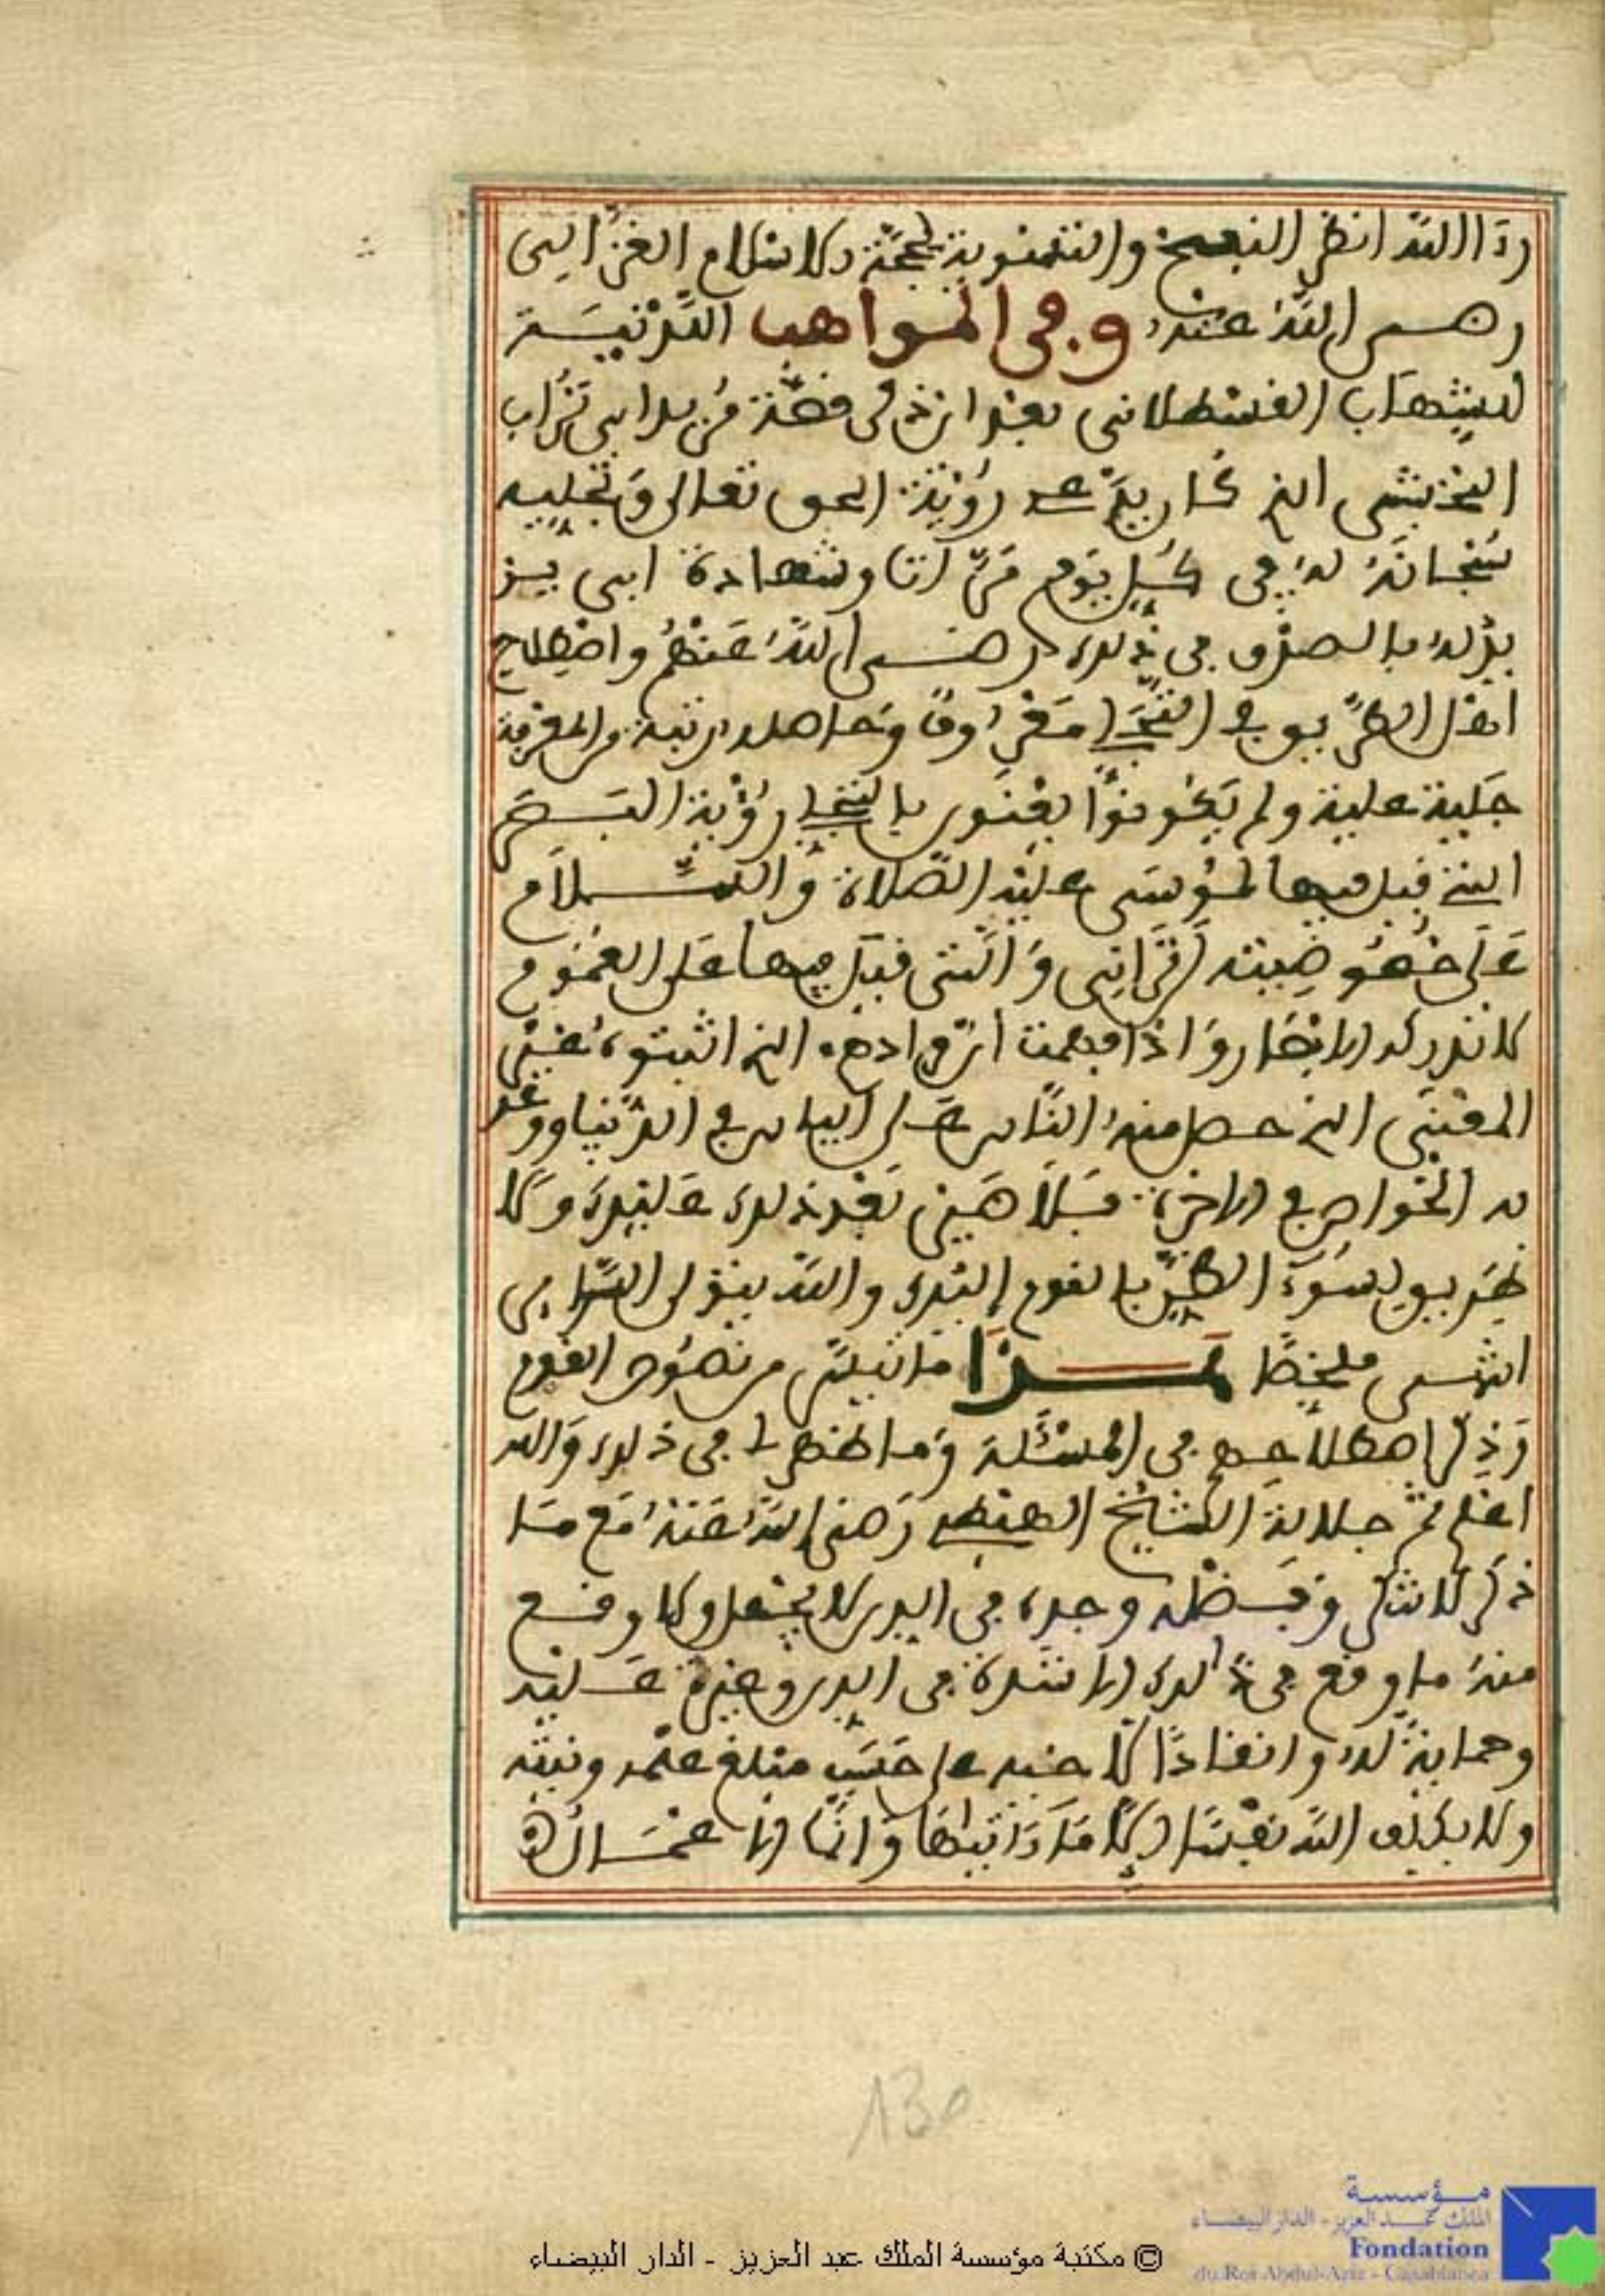 رد الله انظر النبعـ والتنويه لحجة الاسلام الغزالي
رضي الله عنه وفي المواهب اللدنية
للشهاب القسطلاني بعد ان ذكر قصة مريد ابي تراب
النخشبي الذي كان يدعي رؤية الحق تعالى وتجليه
سبحانه له في كل يوم مرارا وشهادة ابي يز
يد له بالصدق في ذلك رضي الله عنهم واصطلاح
اهل الطريق في التجلي معروف وحاصله رتبة من المعرفة
جلية علية ولم يكونوا يعنون بالتجلي رؤية البصر
التي قيل فيها لموسى عليه الصلاة والسلام
على خصوصيته لن تراني والتي قيل فيها على العموم
لا تدركه الابصار واذا فهمت ان مرادهم الذي اثبتوه غير
المعنى الذي حصل منه الناس على الياس في الدنيا ووعد
به الخواص في الاخرة فلا ضير بعد ذلك عليك ولا
طريق لسوء الظن بالقوم اليك والله يتولى السرائر
انتهى ملخصا هذا ما تيسر من نصوص القوم
وذكر اصطلاحهم في المسئلة وما ظهر لي في ذلك والله
اعلم ثم جلالة الشيخ رضي الله عنه مع ما
ذكر لا تنكر وفضله وجده في الدين لا يجهل وما وقع
منه ما وقع في ذلك الا شدة في الدين وغيرة عليه
وحماية له وانقاذا لاخيه على حسب مبلغ علمه ونيته
ولا يكلف الله نفسا الا ما ءاتيها وانما الاعمال
130
مؤسسة
الملك عبد العزيز - الدار البيضاء
Fondation
du Roi Abdul-Aziz - Casablanca
© مكتبة مؤسسة الملك عبد العزيز - الدار البيضاء